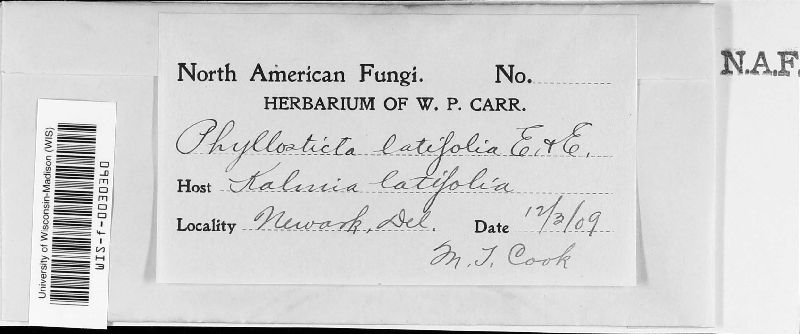 North American Fungi. No.
HERBARIUM OF W. P. CARR.
Phyllosticta latifolia E. & E.
Host Kalmia latifolia
Locality Newark, Del. Date 12/3/09
M. T. Cook
University of Wisconsin-Madison (WIS)
WIS-f-0030390
N.A.F.